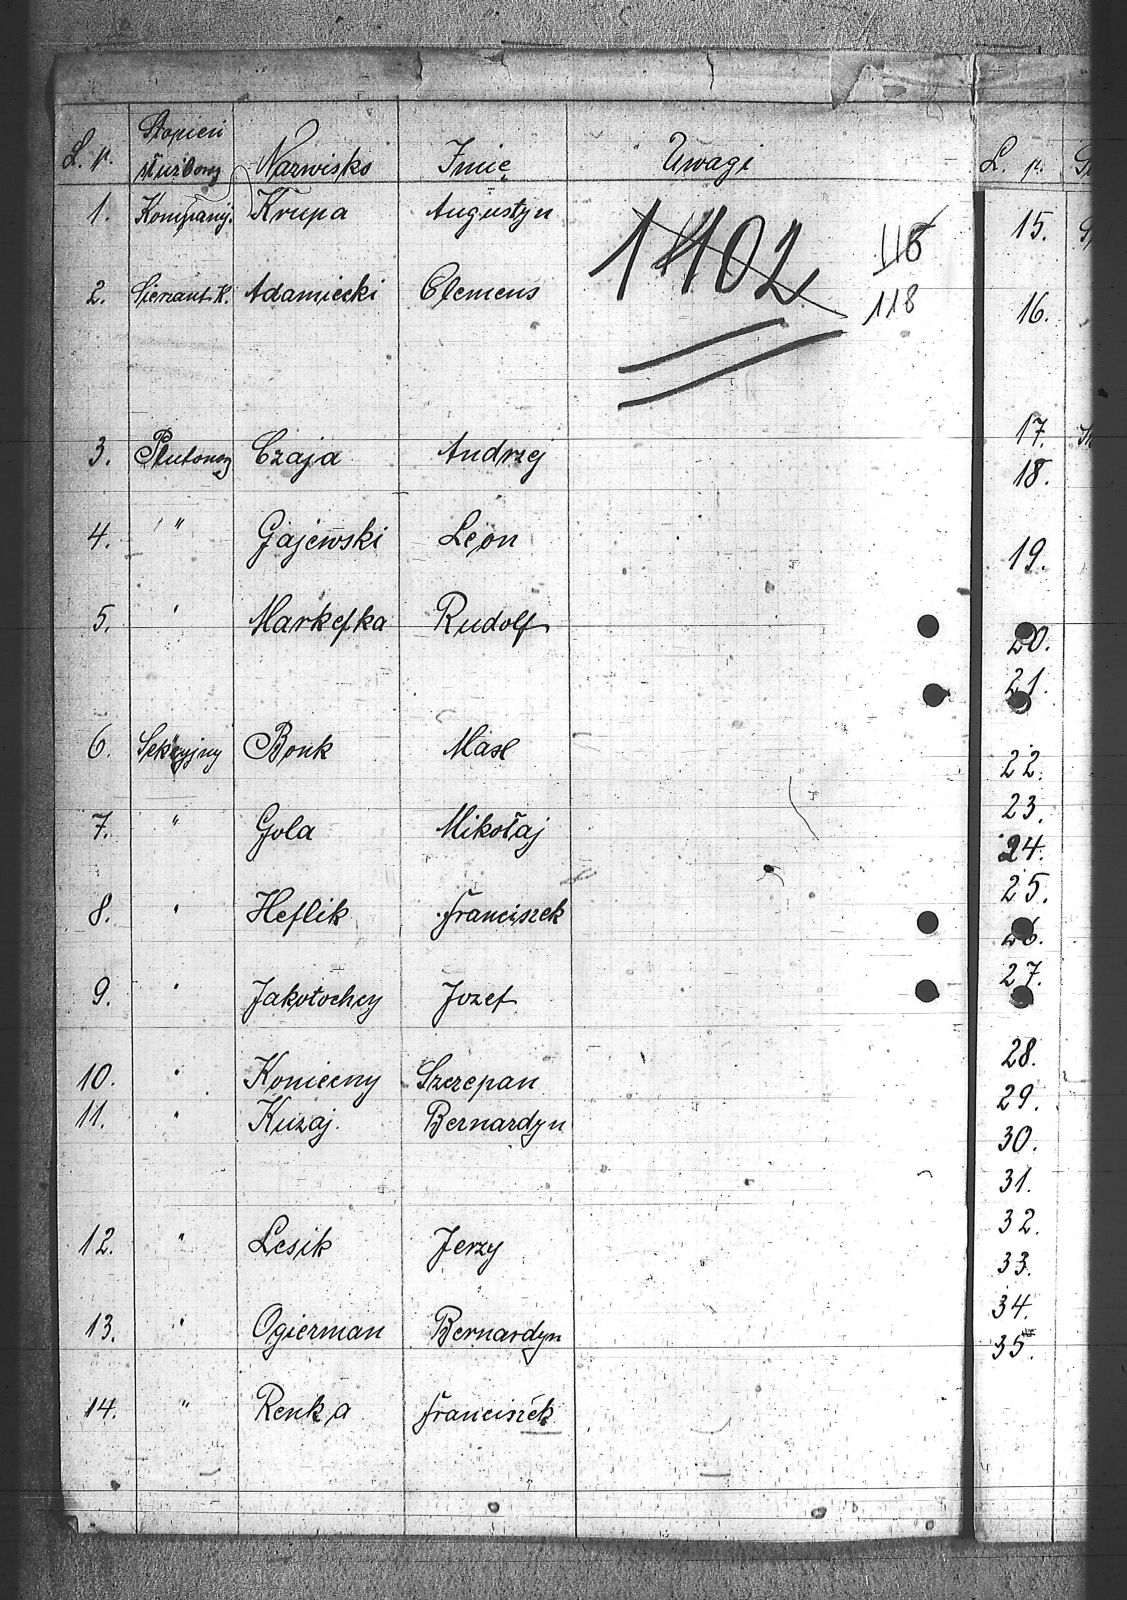 L. p. Stopień służbowy Nazwisko Imię Uwagi
1. Kompanij. Krupa Augustyn
1402 116
2. Sierżant K. Adamiecki Clemens
118
3. Plutonow Czaja Andrzej
4. " Gajewski Leon
5. ' Markefka Rudolf
6. Sekcyjny Bonk Maks
7. " Gola Mikołaj
8. ' Heflik Franciszek
9. ' Jakotochcy Jozef
10. ' Koniecny Szczepan
11. ' Kuzaj. Bernardyn
12. " Lesik Jerzy
13. ' Ogierman Bernardyn
14. " Renka Franciszek
L. p.
15.
16.
17.
18.
19.
20.
21.
22.
23.
24.
25.
26.
27.
28.
29.
30.
31.
32.
33.
34.
35.